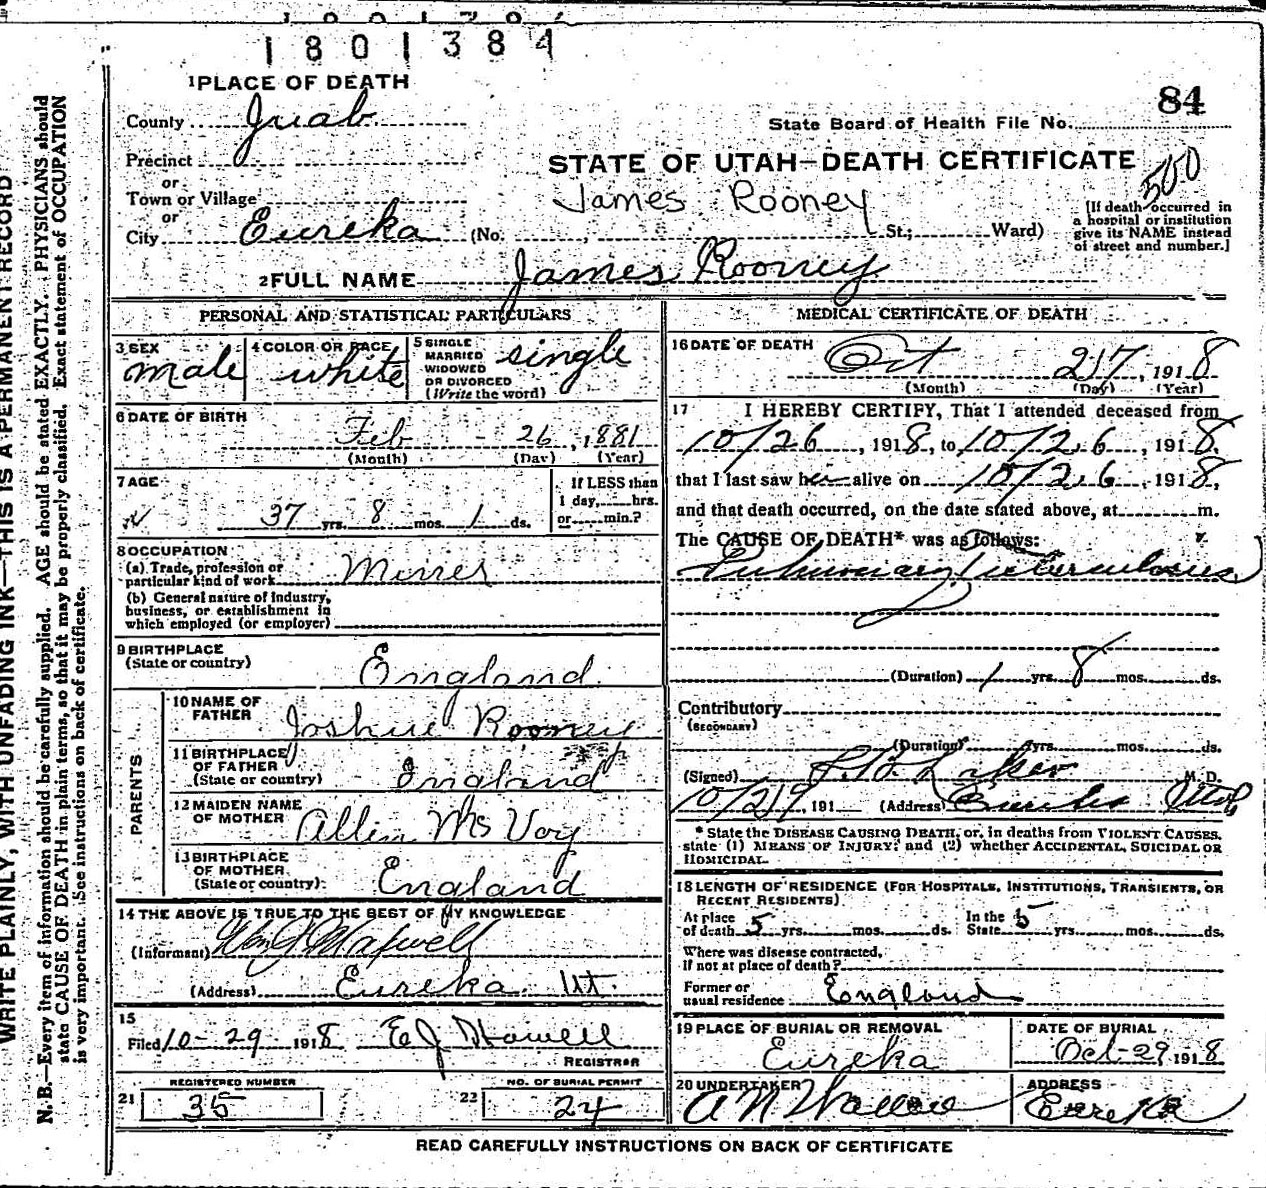 1801384
1 PLACE OF DEATH
84
County Juab
State Board of Health File No.
Precinct
STATE OF UTAH—DEATH CERTIFICATE
or
500
Town or Village
James Rooney
or
City Eureka (No. St.; Ward)
[If death occurred in
a hospital or institution
give its NAME instead
of street and number.]
2 FULL NAME James Rooney
PERSONAL AND STATISTICAL PARTICULARS
3 SEX male
4 COLOR OR RACE white
5 SINGLE
MARRIED
WIDOWED
OR DIVORCED
(Write the word) single
6 DATE OF BIRTH
Feb - 26, 1881
(Month) (Day) (Year)
7 AGE
37 yrs. 8 mos. 1 ds.
If LESS than
1 day, hrs.
or min.?
8 OCCUPATION
(a) Trade, profession or
particular kind of work Miner
(b) General nature of industry,
business, or establishment in
which employed (or employer)
9 BIRTHPLACE
(State or country)
England
PARENTS
10 NAME OF
FATHER Joshue Rooney
11 BIRTHPLACE
OF FATHER
(State or country) England
12 MAIDEN NAME
OF MOTHER Allin Mc Voy
13 BIRTHPLACE
OF MOTHER
(State or country) England
14 THE ABOVE IS TRUE TO THE BEST OF MY KNOWLEDGE
(Informant) Maxwell
(Address) Eureka Ut.
15
Filed 10-29 1918 E J Howell
REGISTRAR
REGISTERED NUMBER
21 35
NO. OF BURIAL PERMIT
22 24
MEDICAL CERTIFICATE OF DEATH
16 DATE OF DEATH
Oct 27, 1918
(Month) (Day) (Year)
17 I HEREBY CERTIFY, That I attended deceased from
10/26, 1918, to 10/26, 1918,
that I last saw him alive on 10/26, 1918,
and that death occurred, on the date stated above, at m.
The CAUSE OF DEATH* was as follows:
Pulmonary Tuberculosis
(Duration) 1 yrs. 8 mos. ds.
Contributory
(SECONDARY)
(Duration) yrs. mos. ds.
(Signed) M. D.
10/29, 191 (Address) Eureka Utah
* State the DISEASE CAUSING DEATH, or, in deaths from VIOLENT CAUSES,
state (1) MEANS OF INJURY; and (2) whether ACCIDENTAL, SUICIDAL OR
HOMICIDAL.
18 LENGTH OF RESIDENCE (FOR HOSPITALS, INSTITUTIONS, TRANSIENTS, OR
RECENT RESIDENTS)
At place
of death 5 yrs. mos. ds.
In the
State 5 yrs. mos. ds.
Where was disease contracted,
if not at place of death?
Former or
usual residence England
19 PLACE OF BURIAL OR REMOVAL
Eureka
DATE OF BURIAL
Oct-29 1918
20 UNDERTAKER
ADDRESS
Eureka
READ CAREFULLY INSTRUCTIONS ON BACK OF CERTIFICATE
WRITE PLAINLY, WITH UNFADING INK—THIS IS A PERMANENT RECORD
N. B.—Every item of information should be carefully supplied. AGE should be stated EXACTLY. PHYSICIANS should
state CAUSE OF DEATH in plain terms, so that it may be properly classified. Exact statement of OCCUPATION
is very important. See instructions on back of certificate.